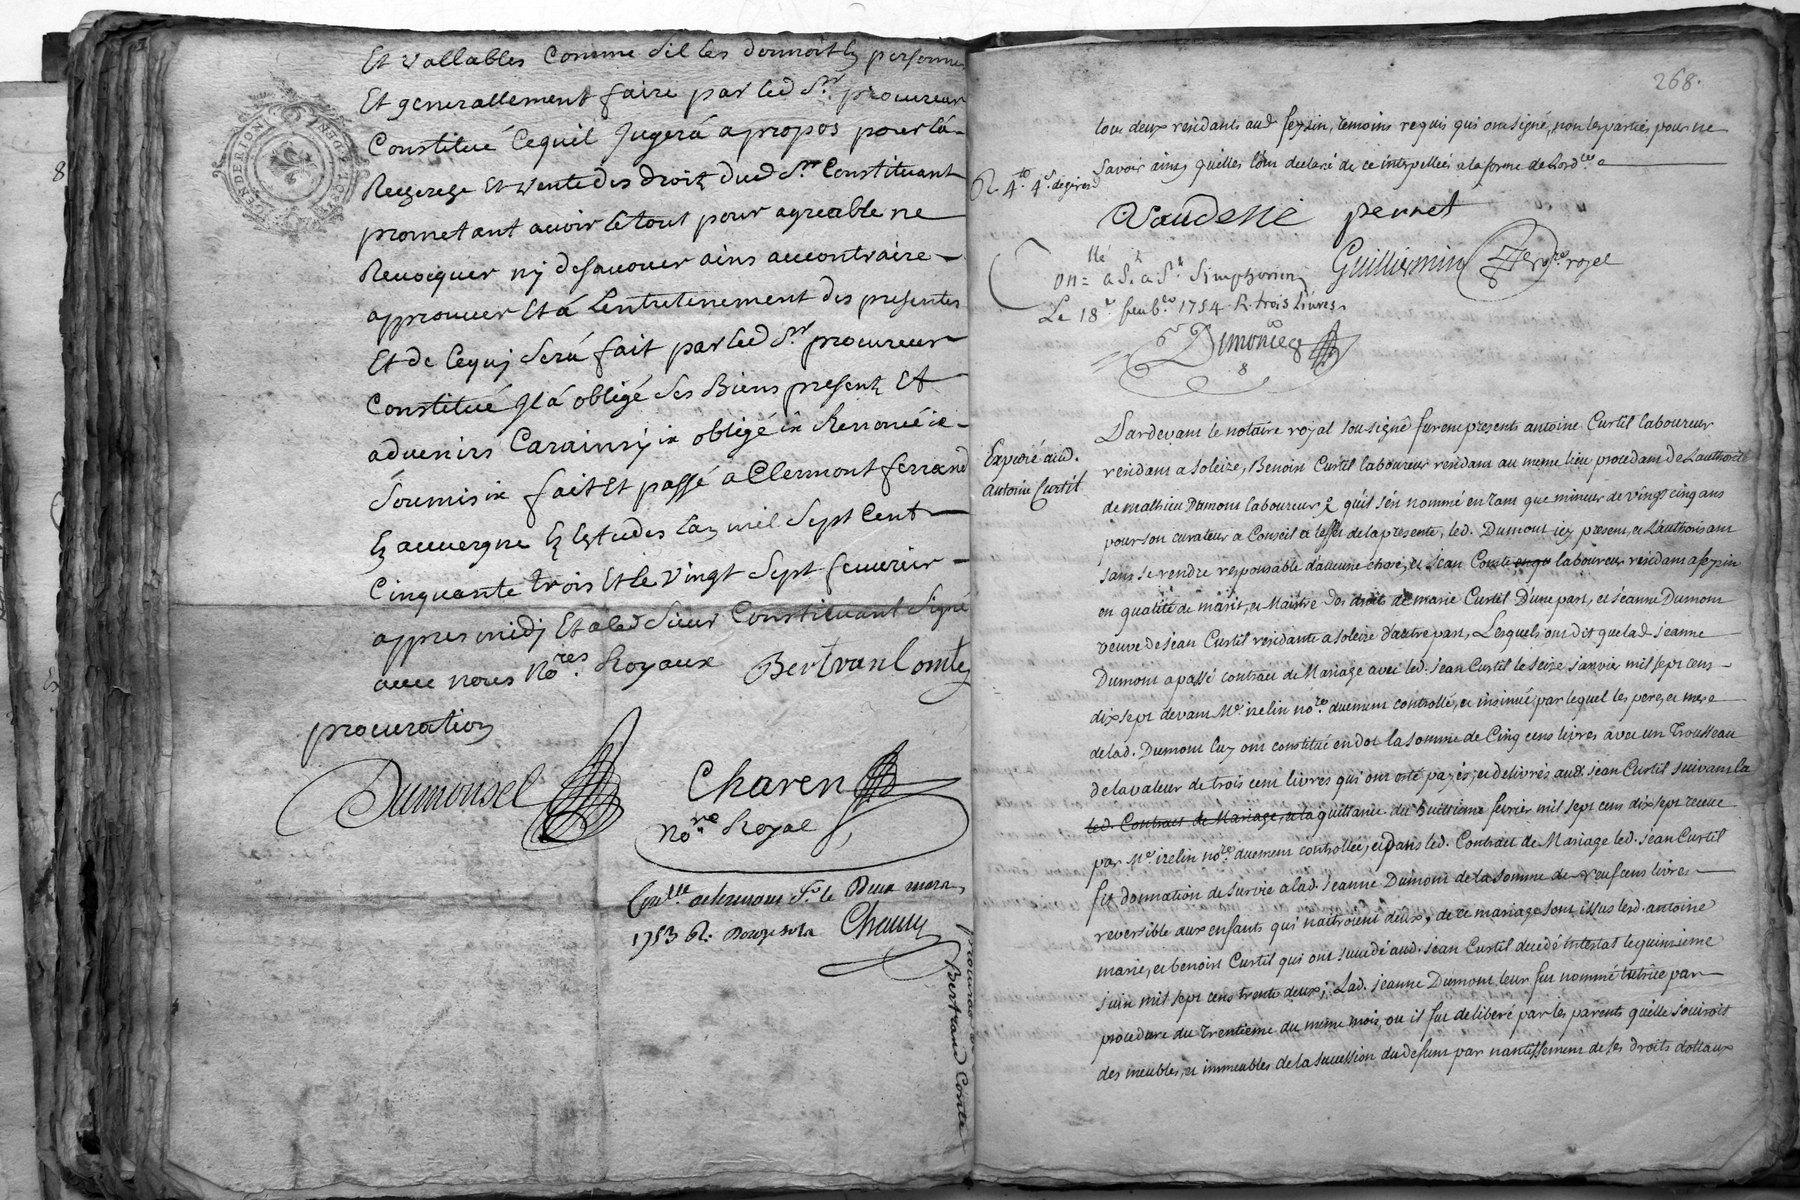 Et vallables Comme sil les donnoit En personne
Et generallement faire par led Sr. procureur
Constitué Cequil Jugerá apropos pour lá
promettant avoir le tout pour agreable ne
Revocquer nÿ desavouer ains aucontraire
approuver Et á Lentretenement des presentes
Et de Cequj Será fait par led Sr. procureur
Constitué Jl á obligé Ses Biens present Et
advenirs obligé Renoncé
Soumis fait Et passé a Clermont ferrand
En auvergne En Estudes Lan mil Sept Cent
Cinquante trois Et le Vingt Sept feuvrier
appres midj Et a led Sieur Constituant Signé
avec nous Nores. Royaux Bertran Comte
procuration
Dumousel
Charen
Nore Royal
a clermont le Deux mars
1753 R. Douze sols Chaury
procuration
Bertrand Comte
268.
tous deux residants aud feyzin, temoins requis qui ont signé, non les parties pour ne
Savoir ainsy quelles lont declaré de ce interpellées a la forme de Lordce
Vaudelle pernet
Guilliermin nore royel
Onlé a St. Simphorien
Le 18e 1754 R. trois livres
Dimonceg
Expedié aud.
Antoine Curtil
Pardevant le notaire royal sousigné furent presents antoine Curtil laboureur
residant a soleize, Benoit Curtil laboureur residant au meme lieu procedant de Lauthorité
de mathieu Dumont laboureur qu'il s'en nommé en tant que mineur de vingt cinq ans
pour son curateur a Conseil a leffet de la presente, led. Dumont icy present, et Lauthorisant
sans se rendre responsable d'aucune chose, et Jean Comte laboureur residant a feyzin
en qualité de marit, et Maistre des droits de marie Curtil D'une part, et jeanne Dumont
veuve de jean Curtil residante a soleize d'autre part, Lesquels ont dit que lad. jeanne
Dumont a passé contract de Mariage avec led. jean Curtil le seize janvier mil sept cens
dix sept devant Me. izelin nore duement controllé, et insinué par lequel les pere, et mere
de lad. Dumont luy ont constitué en dot la somme de Cinq cens livres avec un Trousseau
de la valeur de trois cent livres qui ont esté payés, et delivrés aud. jean Curtil suivant la
led. Contract de Mariage, et la quittance du huittieme fevrier mil sept cens dix sept receue
par Me. izelin nore duement controllée, et dans led. Contract de Mariage led. jean Curtil
fit donnation de survie a lad. jeanne Dumont de la somme de neuf cens livres
reversible aux enfants qui naitroient deux, de ce mariage sont issus lesd. antoine
marie, et benoit Curtil qui ont succedé aud. jean Curtil decedé intestat le quinzieme
juin mil sept cens trente deux; Lad. jeanne Dumont leur fut nommé tutrice par
procedure du trentieme du meme mois, ou il fut deliberé par les parents quelle jouiroit
des meubles, et immeubles de la succession du defunt par nantissement de ses droits dottaux